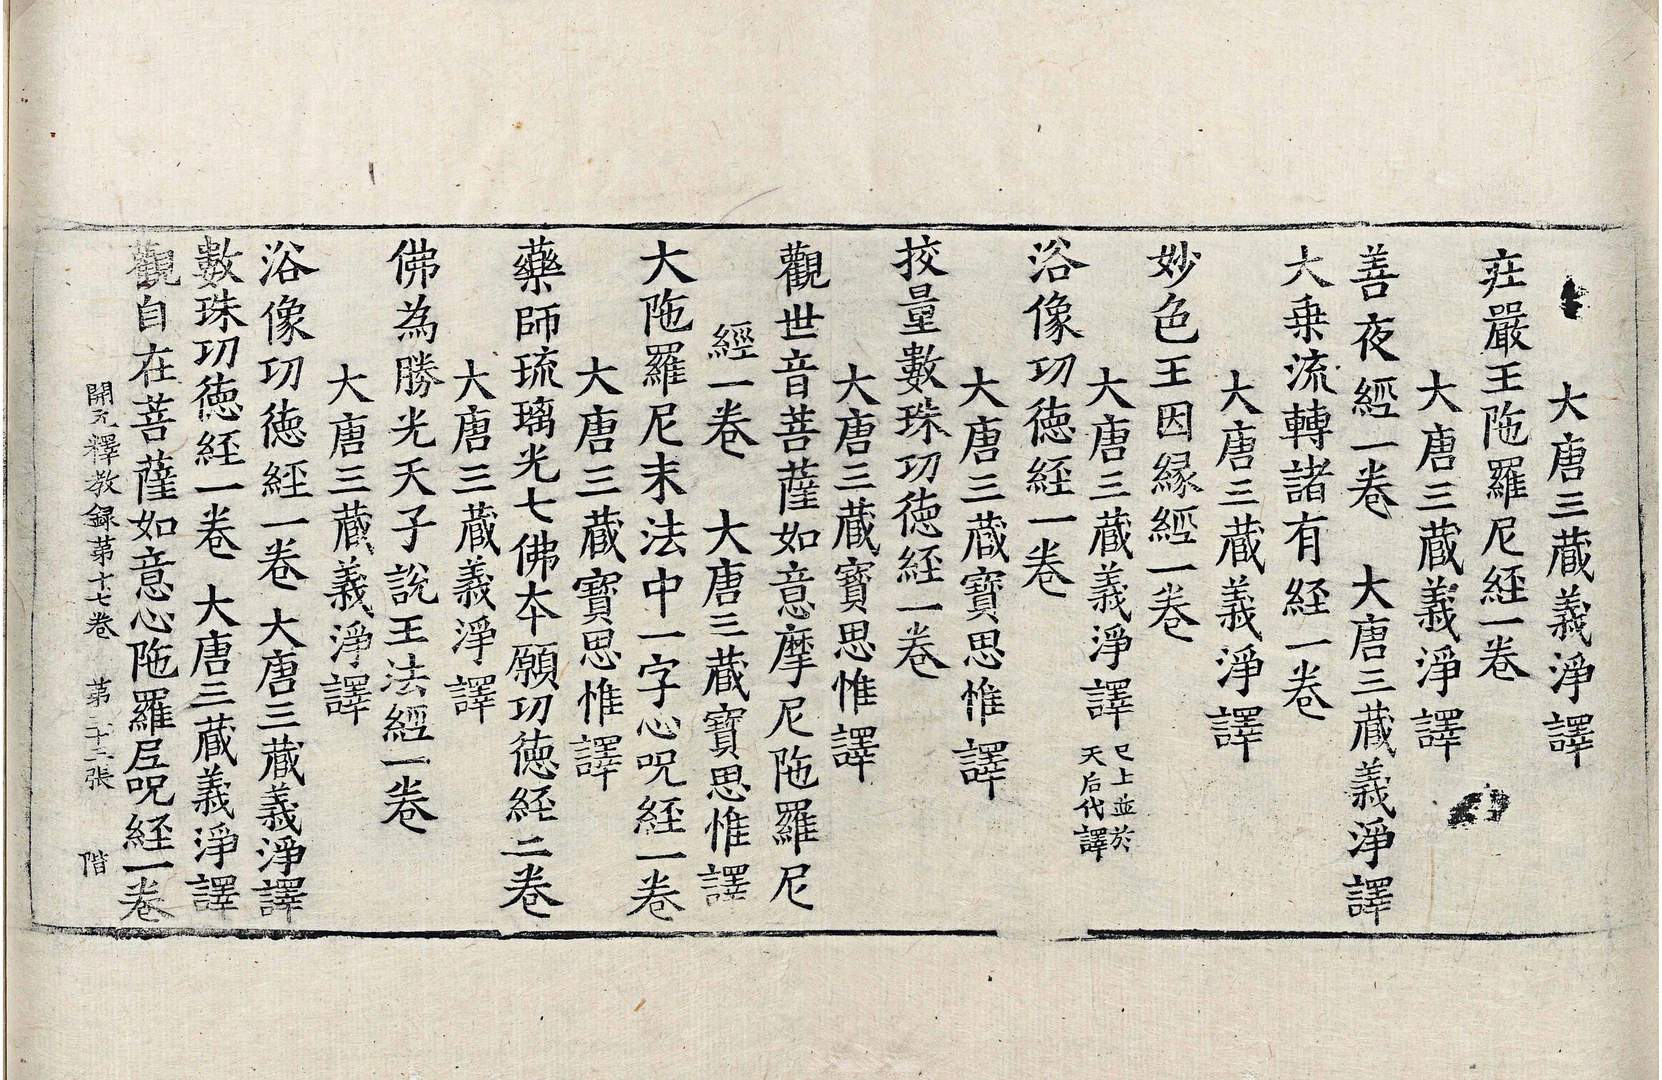 大唐三藏義淨譯
莊嚴王陁羅尼經一卷
大唐三藏義淨譯
善夜經一卷　大唐三藏義淨譯
大乗流轉諸有經一卷
大唐三藏義淨譯
妙色王因縁經一卷
大唐三藏義淨譯已上並於天后代譯
浴像功德經一卷
大唐三藏寶思惟譯
挍量數珠功德經一卷
大唐三藏寶思惟譯
觀世音菩薩如意摩尼陁羅尼
經一卷　大唐三藏寶思惟譯
大陁羅尼末法中一字心呪經一卷
大唐三藏寶思惟譯
藥師琉璃光七佛本願功德經二卷
大唐三藏義淨譯
佛為勝光天子說王法經一卷
大唐三藏義淨譯
浴像功德經一卷　大唐三藏義淨譯
數珠功德經一卷　大唐三藏義淨譯
觀自在菩薩如意心陁羅尼呪經一卷
開元釋教録苐十七卷　苐二十二張　階